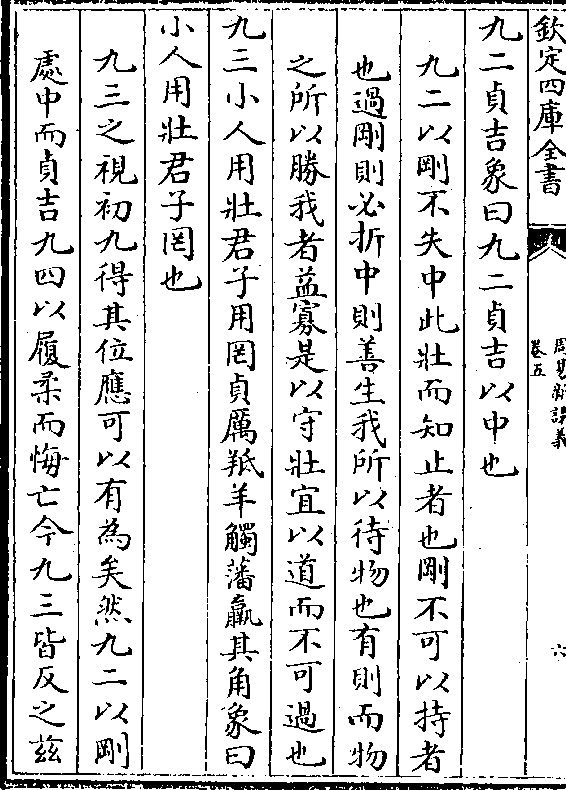 欽定四庫全書
周易新講義
卷五
六
九二貞吉象曰九二貞吉以中也
九二以剛不失中此壯而知止者也剛不可以持者
也過剛則必折中則善生我所以待物也有則而物
之所以勝我者益寡是以守壯宜以道而不可過也
九三小人用壯君子用罔貞厲羝羊觸藩羸其角象曰
小人用壯君子罔也
九三之視初九得其位應可以有為矣然九二以剛
處中而貞吉九四以履柔而悔亡今九三皆反之茲